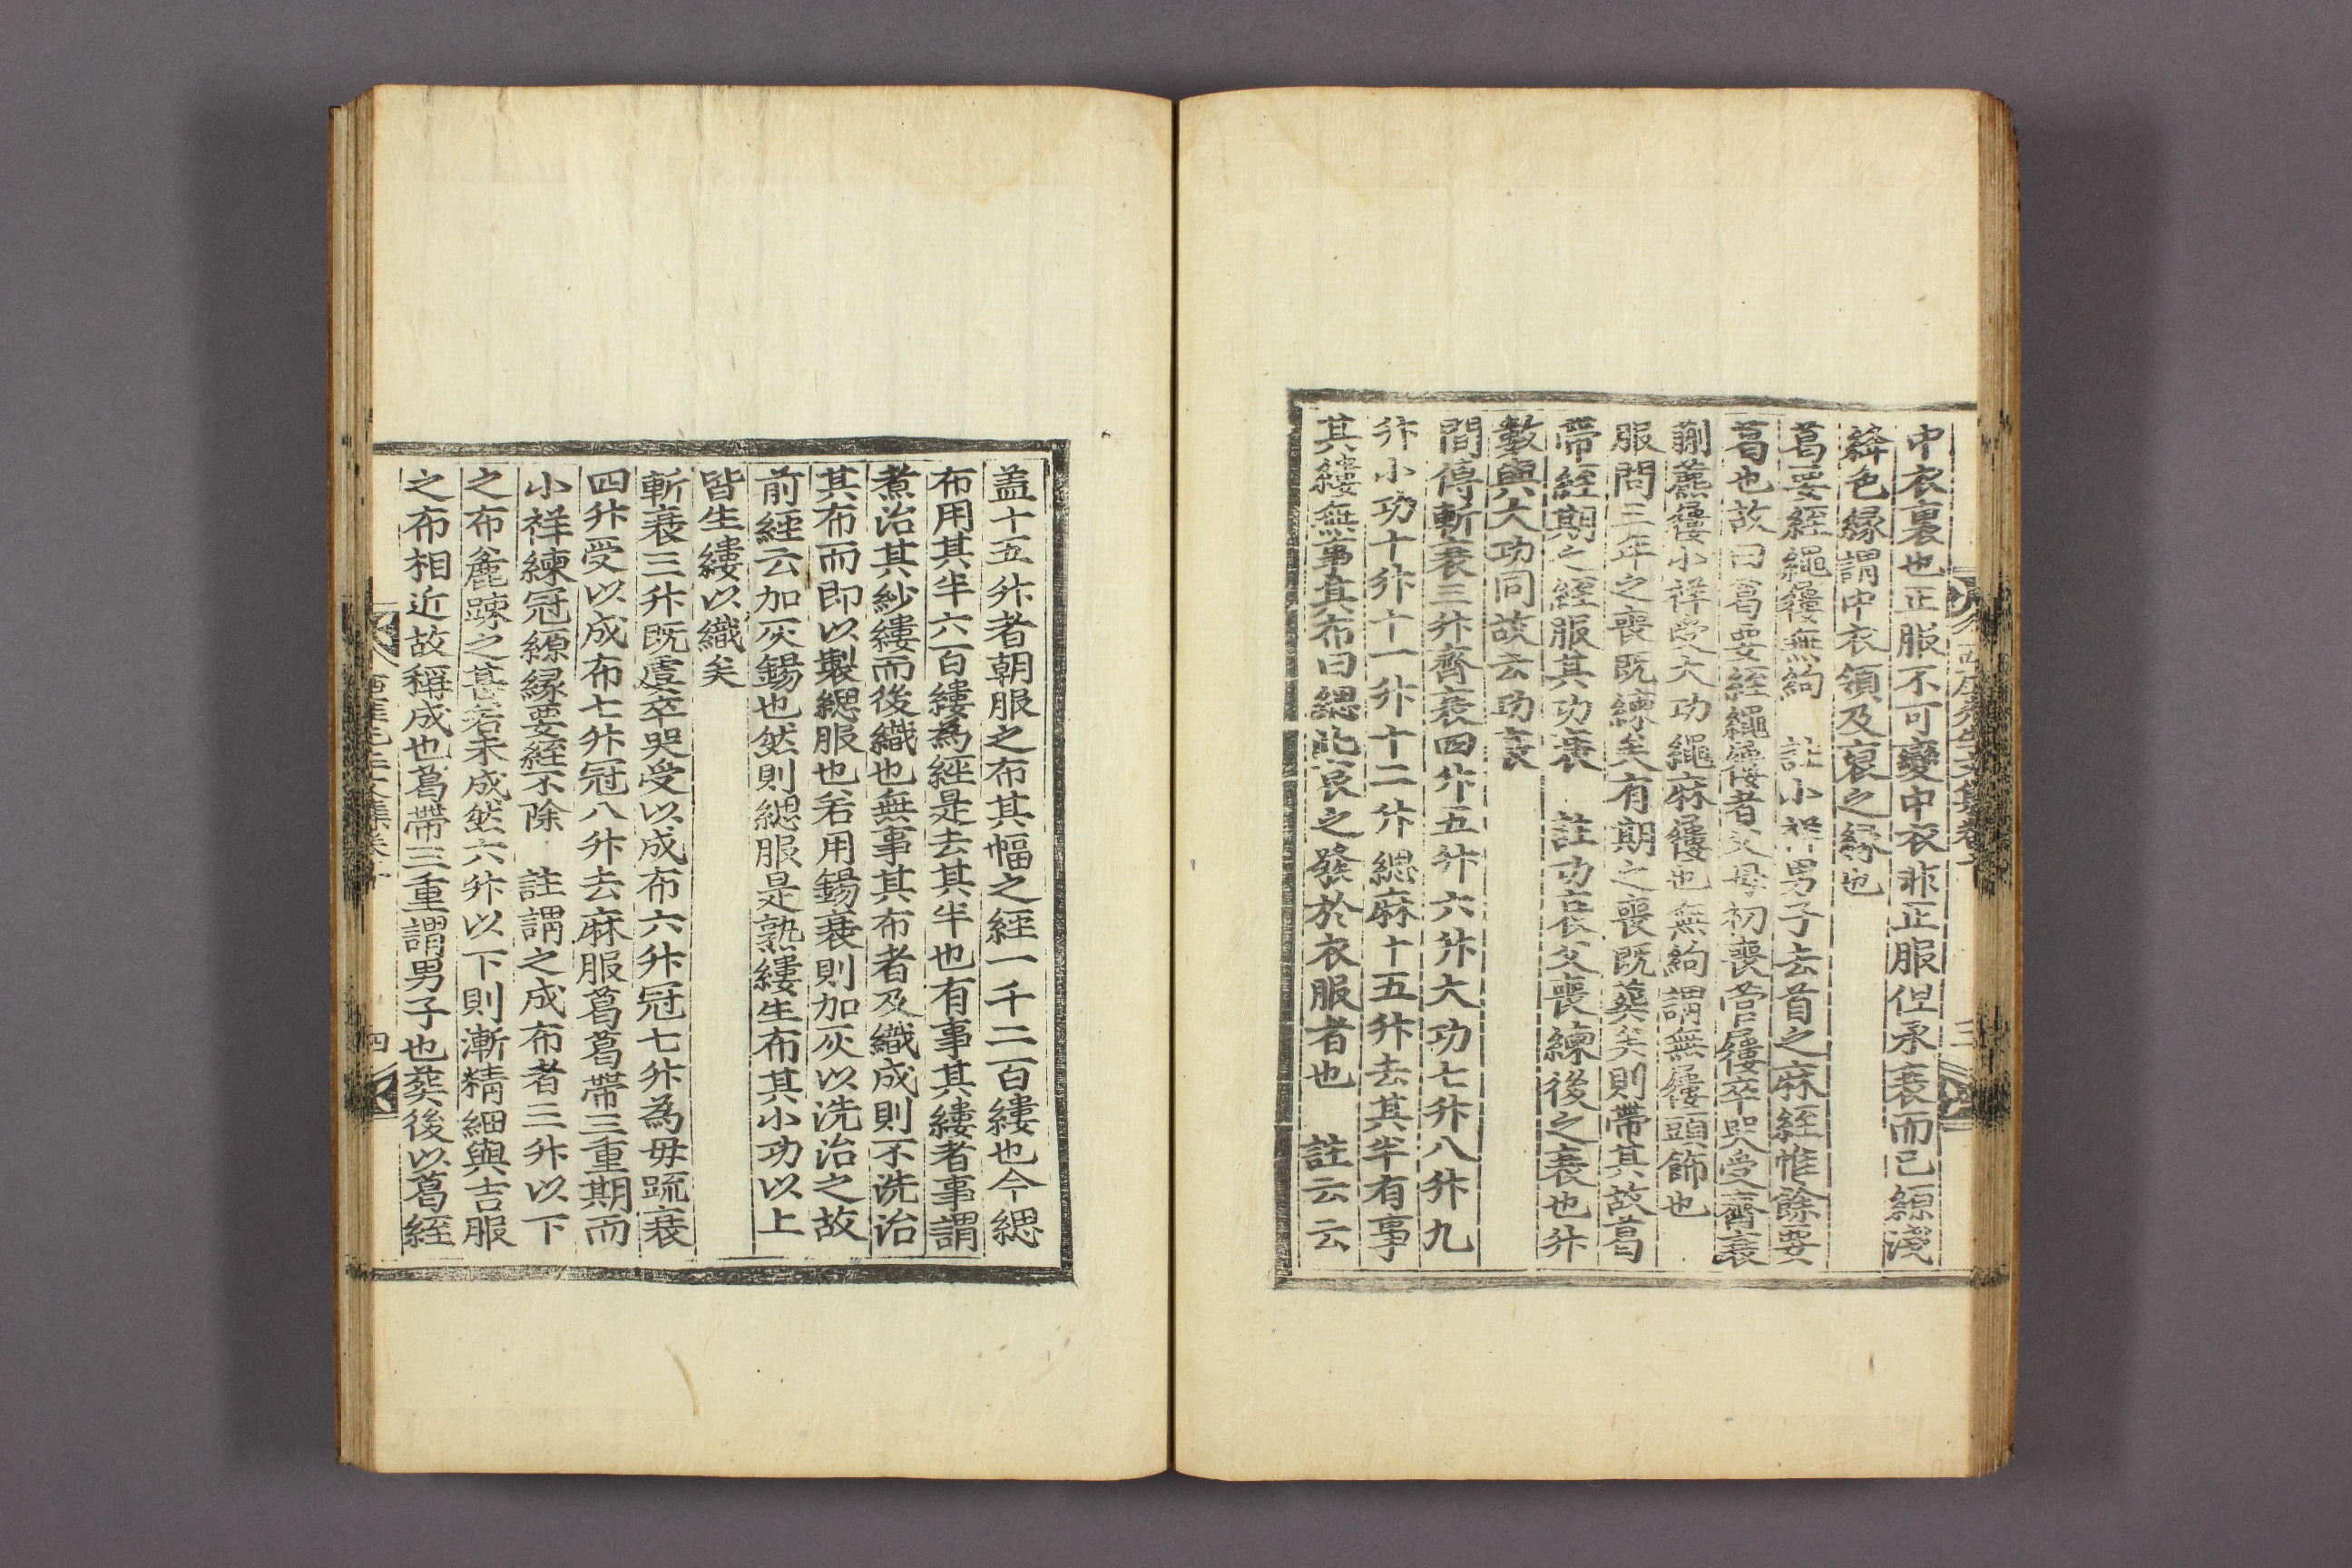 中衣裏也正服不可變中衣非正服但承衰而已縓淺
絳色緣謂中衣領及裒之緣也
葛要絰繩屨無絇 註小祥男子去首之麻絰惟餘要
葛也故曰葛要絰繩屨者父母初喪菅屨卒哭受齊衰
蒯藨屨小祥受大功繩麻屨也無絇謂無屨頭飾也
服問三年之喪既練矣有期之喪既葬矣則帶其故葛
帶絰期之絰服其功衰 註功衰父喪練後之衰也升
數與大功同故云功衰
間傳斬衰三升齊衰四升五升六升大功七升八升九
升小功十升十一升十二升緦麻十五升去其半有事
其縷無事其布曰緦此哀之發於衣服者也 註云云
盖十五升者朝服之布其幅之經一千二百縷也今緦
布用其半六百縷為經是去其半也有事其縷者事謂
煮治其紗縷而後織也無事其布者及織成則不洗治
其布而即以製緦服也若用錫衰則加灰以洗治之故
前經云加灰錫也然則緦服是熟縷生布其小功以上
皆生縷以織矣
斬衰三升既虞卒哭受以成布六升冠七升為毋疏衰
四升受以成布七升冠八升去麻服葛葛帶三重期而
小祥練冠縓緣要絰不除 註謂之成布者三升以下
之布麄踈之甚若未成然六升以下則漸精細與吉服
之布相近故稱成也葛帶三重謂男子也葬後以葛絰
四